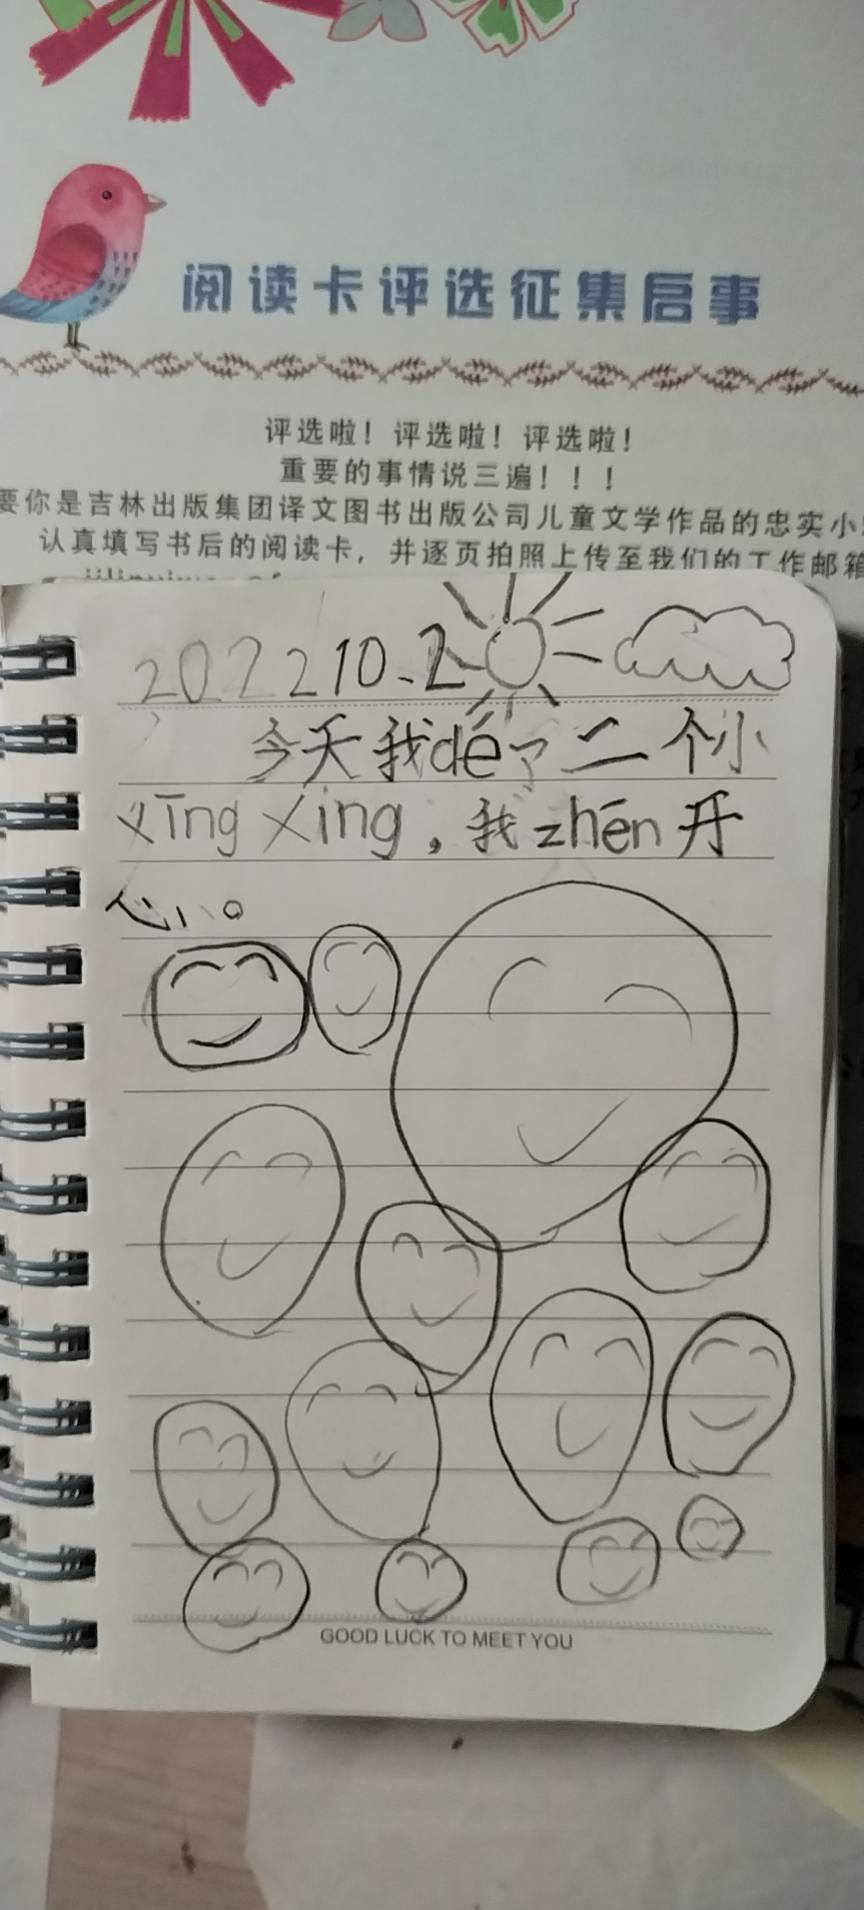 阅读卡评选征集启事
评选啦！评选啦！评选啦！
重要的事情说三遍！！！
要你是吉林出版集团译文图书出版公司儿童文学作品的忠实小
认真填写书后的阅读卡，并逐页拍照上传至我们的工作邮箱
2022 10.2
今天我dé了二个小
xīng xing，我zhēn开
心。
GOOD LUCK TO MEET YOU